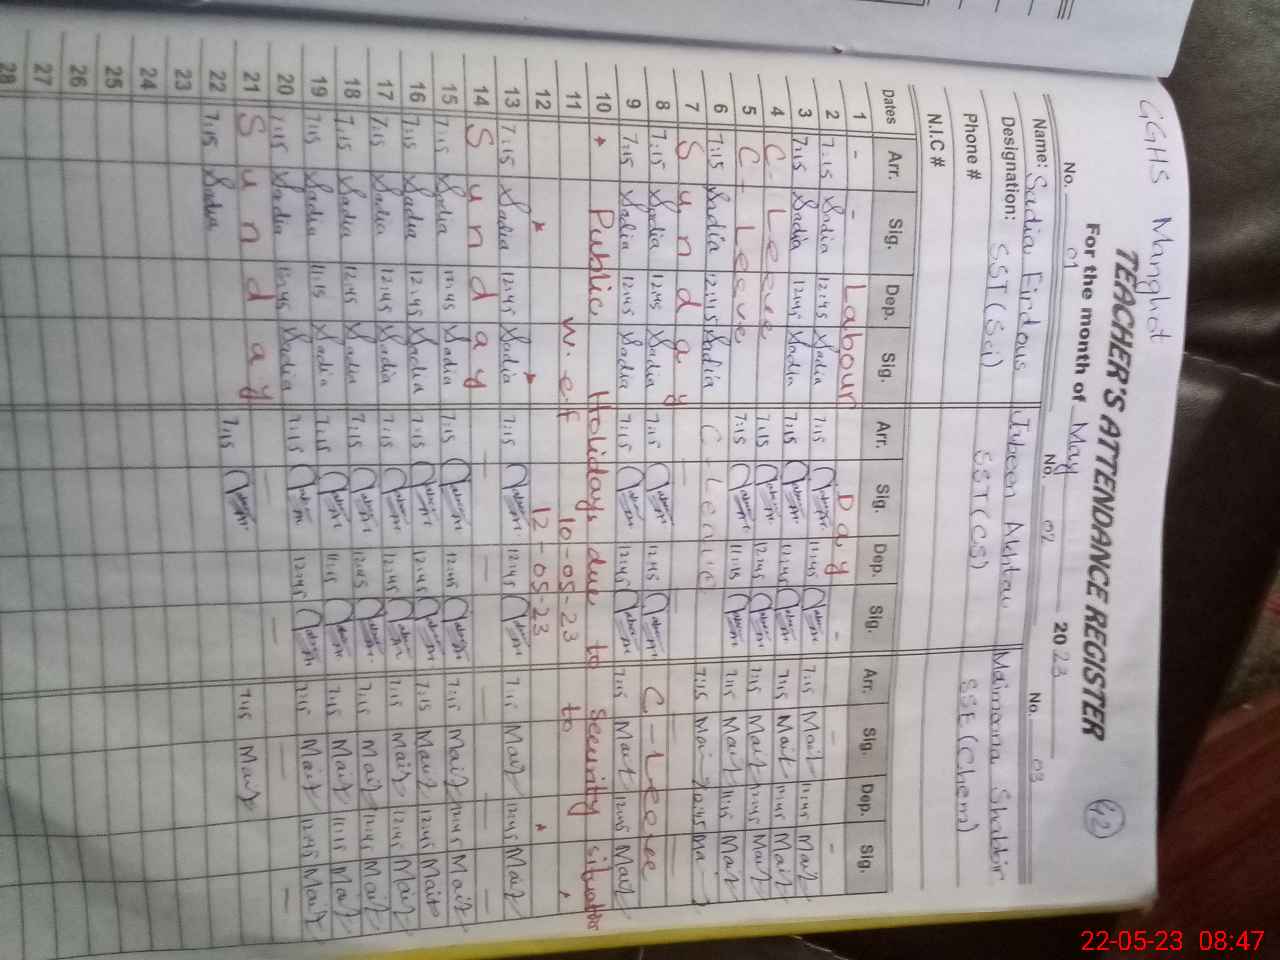 GGHS Manghot
42
TEACHER'S ATTENDANCE REGISTER
For the month of May 2023
No. 01 No. 02 No. 03
Name: Sadia Firdous Akhtar Maimoona Shabbir
Designation: SST (Sci) SST (CS) SSE (Chem)
Phone #
N.I.C #
Dates Arr. Sig. Dep. Sig. Arr. Sig. Dep. Sig. Arr. Sig. Dep. Sig.
1 - - Labour Day - - -
2 7:15 Sadia 12:45 Sadia 7:15 12:45 7:15 12:45
3 7:15 Sadia 12:45 Sadia 7:15 12:45 7:15 12:45
4 C- Leave 7:15 12:45 7:15 12:45
5 C- Leave 7:15 11:15 7:15 11:15
6 7:15 Sadia 12:45 Sadia C-Leave 7:15 12:45
7 Sunday
8 7:15 Sadia 12:45 Sadia 7:15 12:45 C-Leave
9 7:15 Sadia 12:45 Sadia 7:15 12:45 7:15 12:45
10 Public Holidays due to security situation
11 w.e.f 10-05-23 to
12 12-05-23
13 7:15 Sadia 12:45 Sadia 7:15 12:45 7:15 12:45
14 Sunday - - - -
15 7:15 Sadia 12:45 Sadia 7:15 12:45 7:15 12:45
16 7:15 Sadia 12:45 Sadia 7:15 12:45 7:15 12:45
17 7:15 Sadia 12:45 Sadia 7:15 12:45 7:15 12:45
18 7:15 Sadia 12:45 Sadia 7:15 12:45 7:15 12:45
19 7:15 Sadia 11:15 Sadia 7:15 11:15 7:15 11:15
20 7:15 Sadia 12:45 Sadia 7:15 12:45 7:15 12:45
21 Sunday - - - -
22 7:15 Sadia 7:15 7:15
23
24
25
26
27
28
22-05-23 08:47